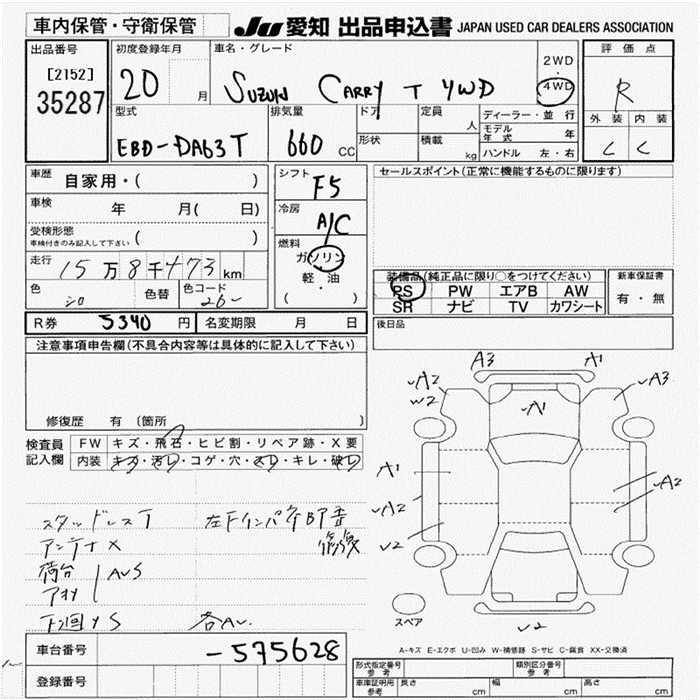 車内保管・守衛保管 JU愛知 出品申込書 JAPAN USED CAR DEALERS ASSOCIATION
出品番号 初度登録年月 車名・グレード 2WD 評価点
[2152] 20 月 SUZUKI CARRY T 4WD 4WD R
35287 型式 排気量 ドア 定員 人 ディーラー・並行 外装 内装
EBD-DA63T 660 CC 形状 積載 kg モデル年式 年 C C
ハンドル 左・右
車歴 自家用・( ) シフト F5 セールスポイント(正常に機能するものに限ります)
車検 年 月( 日) 冷房 A/C
受検形態 ( )
車検付きのみ記入して下さい
燃料 ガソリン
軽・油
( )
走行 15万8千473km
色 シロ 色替 色コード 26-
装備品(純正品に限り○をつけてください) 新車保証書
PS PW エアB AW 有・無
SR ナビ TV カワシート
R券 5340円 名変期限 月 日 後日品
注意事項申告欄(不具合内容等は具体的に記入して下さい)
修復歴 有 〔箇所 〕
検査員記入欄 FW キズ・飛石・ヒビ割・リペア跡・X要
内装 キズ・汚レ・コゲ・穴・スレ・キレ・破レ
A3 A1
A2 A3
W2 A1
A1 A2
A2
U2
スタッドレスT 左Fインパネ
アンテナX 修復
荷台 AUS
アオリ
下回りS 各AU.
スペア U2
A-キズ E-エクボ U-凹み W-補修跡 S-サビ C-腐食 XX-交換済
車台番号 -575628
登録番号
形式指定番号 参考 類別区分番号 参考
車庫証明用 参考 長さ cm 幅 cm 高さ cm